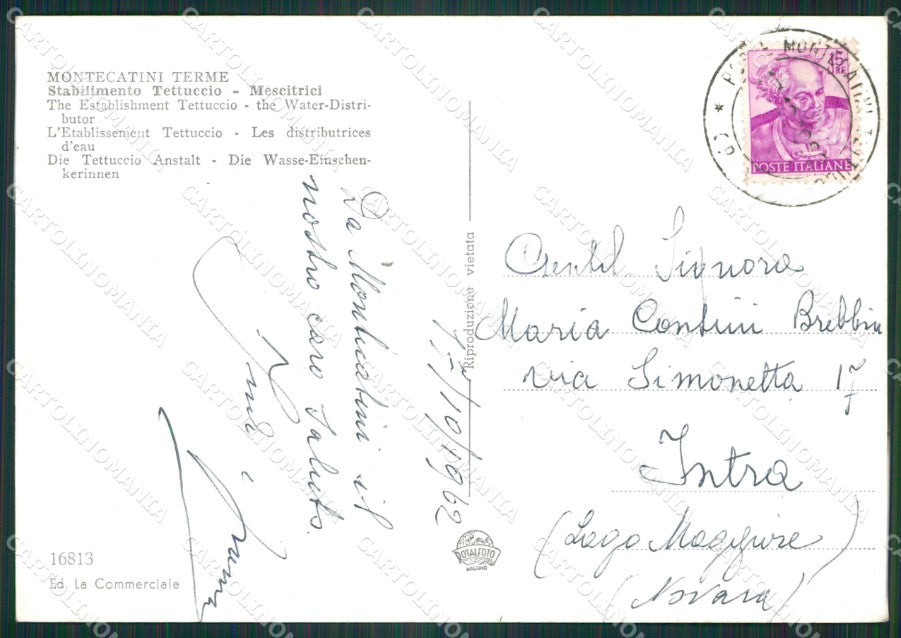 MONTECATINI TERME
Stabilimento Tettuccio - Mescitrici
The Establishment Tettuccio - the Water-Distri-
butor
L'Etablissement Tettuccio - Les distributrices
d'eau
Die Tettuccio Anstalt - Die Wasse-Einschen-
kerinnen
Da Montecatini il
nostro caro saluto.
1/10/1962
Riproduzione vietata
ROTALFOTO
MILANO
16813
Ed. La Commerciale
LIRE
POSTE ITALIANE
Gentil Signora
Maria Contini Brebbia
via Simonetta 17
Intra
(Lago Maggiore)
(Novara)
CARTOLINOMANIA